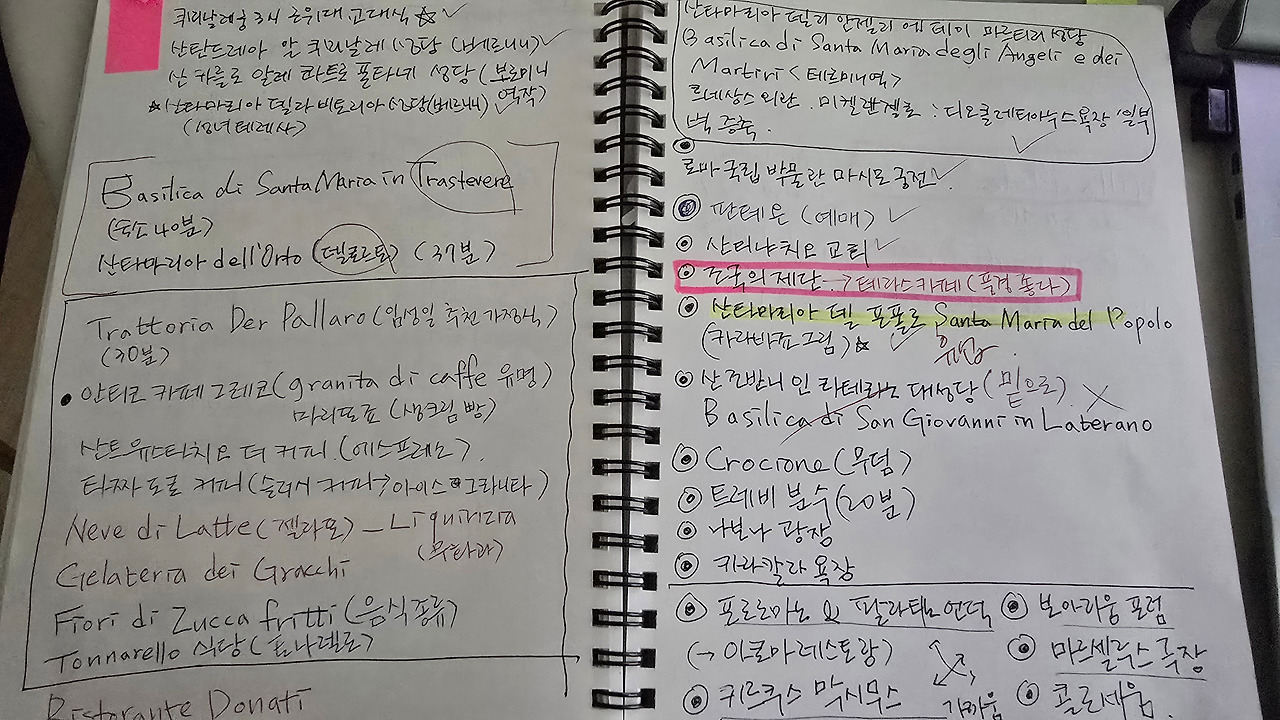 퀴리날레궁 3시 근위대 교대식 ☆ ✓
산탄드레아 알 퀴리날레 성당 (베르니니) ✓
산 카를로 알레 콰트로 폰타네 성당 (보로미니 역작)
☆산타마리아 델라 비토리아 성당(베르니니) ✓
(성녀 테레사)
Basilica di Santa Maria in Trastevere
(숙소 40분)
산타마리아 dell'Orto (37분)
Trattoria Der Pallaro (임성일 추천 가정식)
(30분)
• 안티코 카페 그레코 (granita di caffe 유명)
마리또쪼 (생크림 빵)
산트 유스타치오 더 커피 (에스프레소).
타짜 도로 커피 (슬러시 커피→아이스 그라니타)
Neve di Latte (젤라또) – Liquirizia
Gelateria dei Gracchi
Fiori di Zucca fritti (음식종류)
Tonnarello 식당 (토나렐로)
Ristorante Donati
산타마리아 델리 안젤리 에 데이 마르티리 성당
Basilica di Santa Maria degli Angeli e dei
Martiri <테르미니역>
르네상스 외관. 미켈란젤로 : 디오클레티아누스 욕장 일부
벽 증축.
로마 국립 박물관 마시모 궁전 ✓
판테온 (예매) ✓
산티냐치오 교회 ✓
조국의 제단 → 테라스 카페 (풍경 좋다)
산타마리아 델 포폴로 Santa Maria del Popolo
(카라바죠 그림) ☆ ✓ 유명.
산 조반니 인 라테라노 대성당 (밑으로)
Basilica di San Giovanni in Laterano
Crocione (무덤)
트레비 분수 (20분)
나보나 광장
카라칼라 욕장
포로로마노 & 팔라티노 언덕
보아리움 포럼
(→ 이로마 레스토랑)
마르셀루스 극장
키르쿠스 막시무스
가까움
콜로세움.